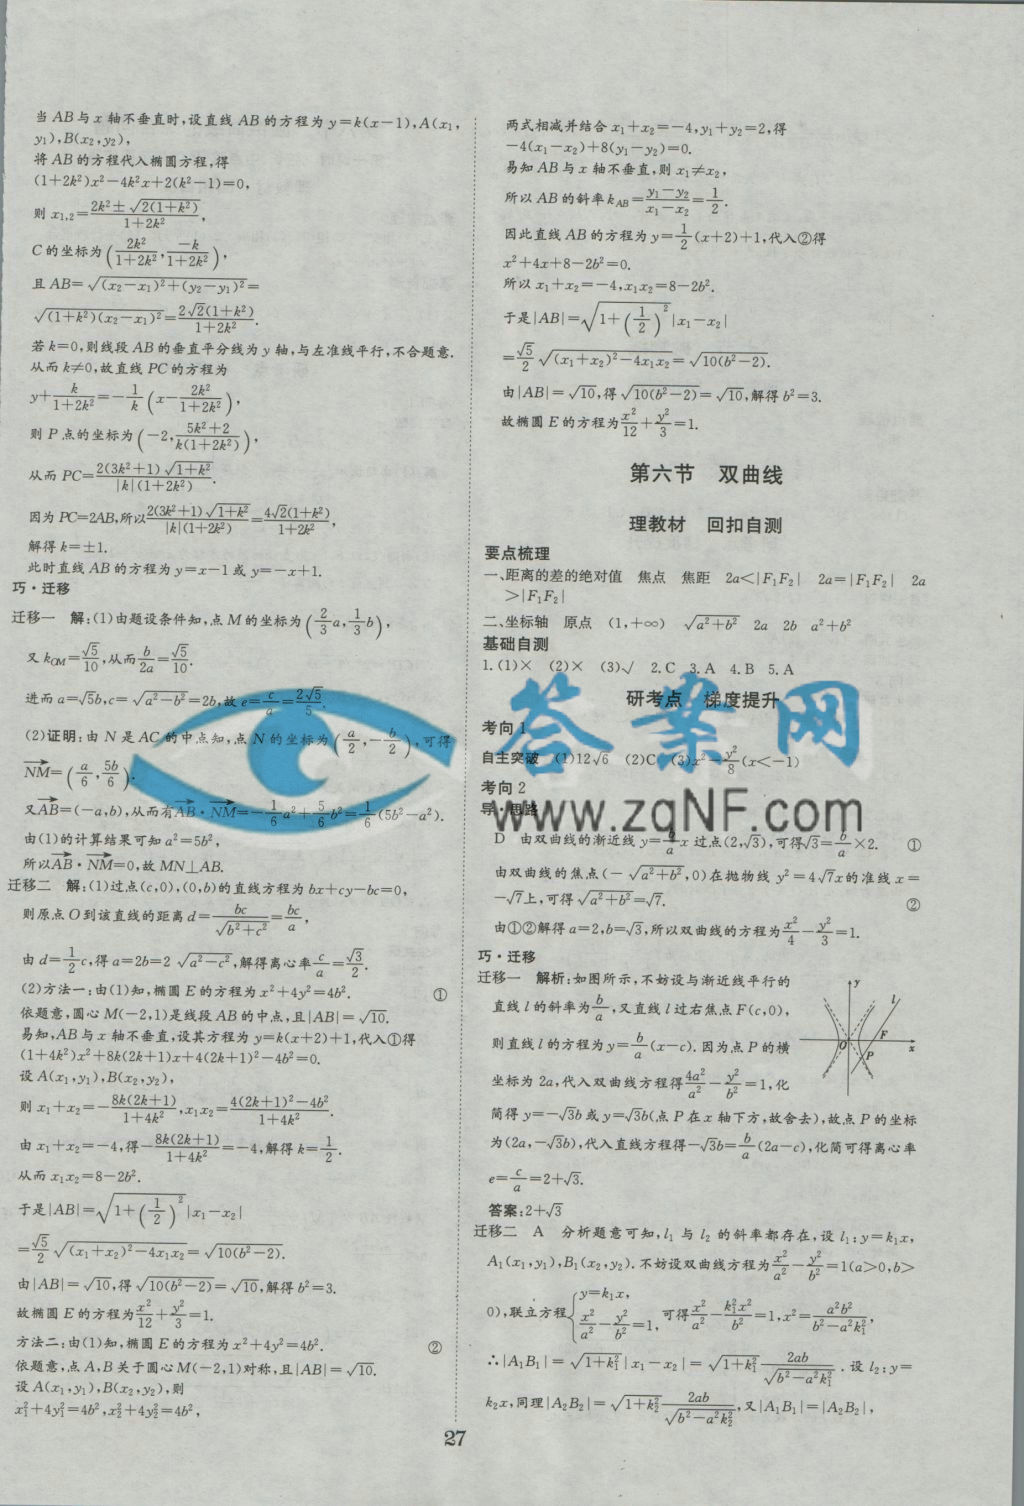 当 AB 与 x 轴不垂直时,设直线 AB 的方程为 y=k(x-1),A(x₁,
y₁),B(x₂,y₂),
将 AB 的方程代入椭圆方程,得
(1+2k²)x²-4k²x+2(k²-1)=0,
则 x₁,₂=(2k²±√(2(1+k²)))/(1+2k²),
C 的坐标为(2k²/(1+2k²), -k/(1+2k²)),
且 AB=√((x₂-x₁)²+(y₂-y₁)²)=
√((1+k²)(x₂-x₁)²)=2√2(1+k²)/(1+2k²).
若 k=0,则线段 AB 的垂直平分线为 y 轴,与左准线平行,不合题意.
从而 k≠0,故直线 PC 的方程为
y+k/(1+2k²)=-1/k(x-2k²/(1+2k²)),
则 P 点的坐标为(-2,(5k²+2)/(k(1+2k²))),
从而 PC=2(3k²+1)√(1+k²)/(|k|(1+2k²)).
因为 PC=2AB,所以2(3k²+1)√(1+k²)/(|k|(1+2k²))=4√2(1+k²)/(1+2k²),
解得 k=±1.
此时直线 AB 的方程为 y=x-1 或 y=-x+1.
巧·迁移
迁移一 解:(1)由题设条件知,点 M 的坐标为(2/3a,1/3b),
又 k_OM=√5/10,从而b/2a=√5/10.
进而 a=√5b,c=√(a²-b²)=2b,故 e=c/a=2√5/5.
(2)证明:由 N 是 AC 的中点知,点 N 的坐标为(a/2,-b/2),可得
NM→=(a/6,5b/6).
又AB→=(-a,b),从而有AB→·NM→=-1/6a²+5/6b²=1/6(5b²-a²).
由(1)的计算结果可知 a²=5b²,
所以AB→·NM→=0,故 MN⊥AB.
迁移二 解:(1)过点(c,0),(0,b)的直线方程为 bx+cy-bc=0,
则原点 O 到该直线的距离 d=bc/√(b²+c²)=bc/a,
由 d=1/2c,得 a=2b=2√(a²-c²),解得离心率c/a=√3/2.
(2)方法一:由(1)知,椭圆 E 的方程为 x²+4y²=4b². ①
依题意,圆心 M(-2,1)是线段 AB 的中点,且|AB|=√10.
易知,AB 与 x 轴不垂直,设其方程为 y=k(x+2)+1,代入①得
(1+4k²)x²+8k(2k+1)x+4(2k+1)²-4b²=0.
设 A(x₁,y₁),B(x₂,y₂),
则 x₁+x₂=-8k(2k+1)/(1+4k²),x₁x₂=(4(2k+1)²-4b²)/(1+4k²).
由 x₁+x₂=-4,得-8k(2k+1)/(1+4k²)=-4,解得 k=1/2.
从而 x₁x₂=8-2b².
于是|AB|=√(1+(1/2)²)|x₁-x₂|
=√5/2√((x₁+x₂)²-4x₁x₂)=√(10(b²-2)).
由|AB|=√10,得√(10(b²-2))=√10,解得 b²=3.
故椭圆 E 的方程为x²/12+y²/3=1.
方法二:由(1)知,椭圆 E 的方程为 x²+4y²=4b². ②
依题意,点 A,B 关于圆心 M(-2,1)对称,且|AB|=√10.
设 A(x₁,y₁),B(x₂,y₂),则
x₁²+4y₁²=4b²,x₂²+4y₂²=4b²,
两式相减并结合 x₁+x₂=-4,y₁+y₂=2,得
-4(x₁-x₂)+8(y₁-y₂)=0.
易知 AB 与 x 轴不垂直,则 x₁≠x₂,
所以 AB 的斜率 k_AB=(y₁-y₂)/(x₁-x₂)=1/2.
因此直线 AB 的方程为 y=1/2(x+2)+1,代入②得
x²+4x+8-2b²=0.
所以 x₁+x₂=-4,x₁x₂=8-2b².
于是|AB|=√(1+(1/2)²)|x₁-x₂|
=√5/2√((x₁+x₂)²-4x₁x₂)=√(10(b²-2)).
由|AB|=√10,得√(10(b²-2))=√10,解得 b²=3.
故椭圆 E 的方程为x²/12+y²/3=1.
第六节 双曲线
理教材 回扣自测
要点梳理
一、距离的差的绝对值 焦点 焦距 2a<|F₁F₂| 2a=|F₁F₂| 2a
>|F₁F₂|
二、坐标轴 原点 (1,+∞) √(a²+b²) 2a 2b a²+b²
基础自测
1.(1)× (2)× (3)√ 2.C 3.A 4.B 5.A
研考点 梯度提升
考向 1
自主突破 (1)12√6 (2)C (3)x²-y²/8(x<-1)
考向 2
导·思路
D 由双曲线的渐近线 y=b/a x 过点(2,√3),可得√3=b/a×2. ①
由双曲线的焦点(-√(a²+b²),0)在抛物线 y²=4√7x 的准线 x=
-√7上,可得√(a²+b²)=√7. ②
由①②解得 a=2,b=√3,所以双曲线的方程为x²/4-y²/3=1.
巧·迁移
迁移一 解析:如图所示,不妨设与渐近线平行的
直线 l 的斜率为b/a,又直线 l 过右焦点 F(c,0),
则直线 l 的方程为 y=b/a(x-c).因为点 P 的横
坐标为 2a,代入双曲线方程得4a²/a²-y²/b²=1,化
简得 y=-√3b 或 y=√3b(点 P 在 x 轴下方,故舍去),故点 P 的坐标
为(2a,-√3b),代入直线方程得-√3b=b/a(2a-c),化简可得离心率
e=c/a=2+√3.
y l O F P x
答案:2+√3
迁移二 A 分析题意可知,l₁ 与 l₂ 的斜率都存在,设 l₁:y=k₁x,
A₁(x₁,y₁),B₁(x₂,y₂).不妨设双曲线方程为x²/a²-y²/b²=1(a>0,b>
0),联立方程{y=k₁x, x²/a²-y²/b²=1, 可得x²/a²-k₁²x²/b²=1,x²=a²b²/(b²-a²k₁²),
∴|A₁B₁|=√(1+k₁²)|x₁-x₂|=√(1+k₁²) 2ab/√(b²-a²k₁²).设 l₂:y=
k₂x,同理|A₂B₂|=√(1+k₂²) 2ab/√(b²-a²k₂²),又|A₁B₁|=|A₂B₂|,
27
答案网
www.zqNF.com